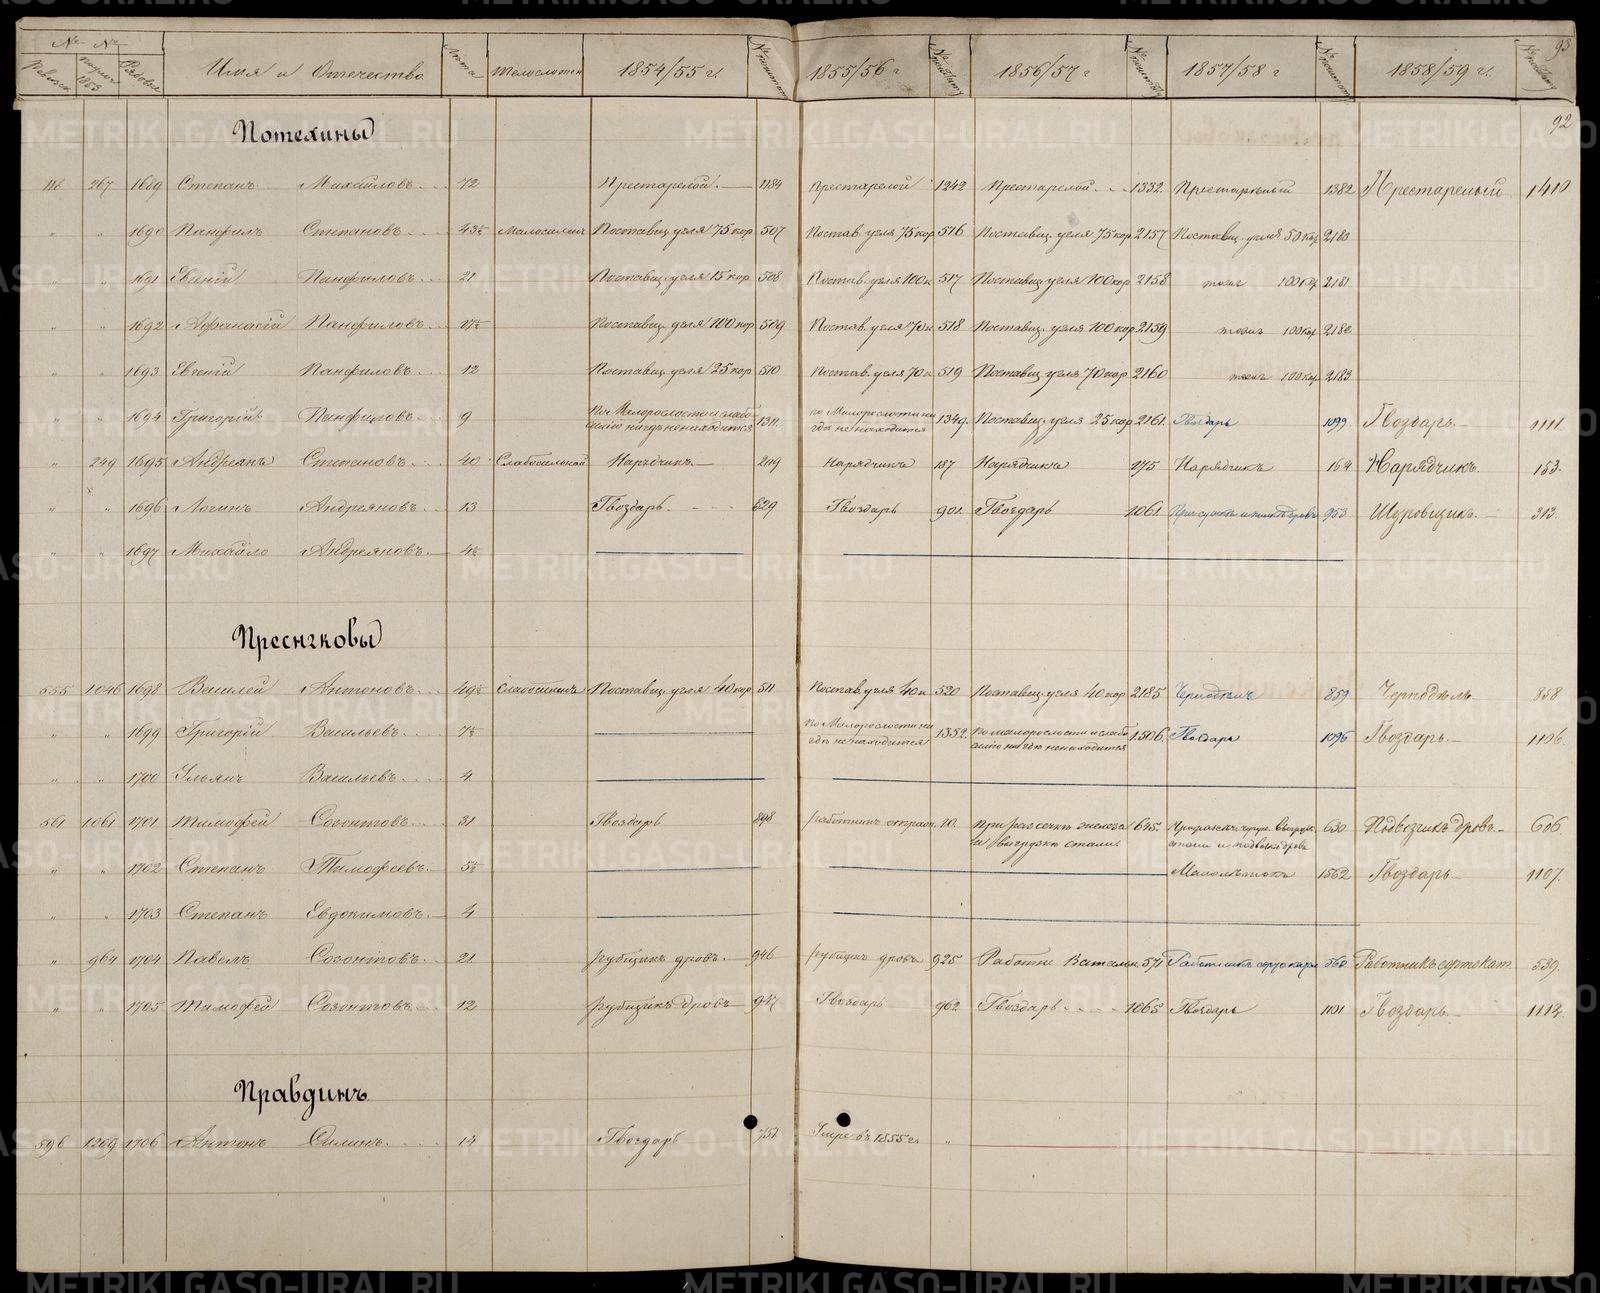 № № Имя и Отечество Лѣта Телосложен. 1854/55 г. 1855/56 г 1856/57 г 1857/58 г 1858/59 г. 93
Ревизск 1853 Рядовые
92
Потехины
118 267 1689 Степанъ Михайловъ 72 Престарелой 1184 Престарелой 1242 Престарелой 1332 Престарелый 1382 Престарелый 1410
" " 1690 Панфилъ Степановъ 43½ Малосиленъ Поставщ. угля 75 кор 507 Постав. угля 75 кор 516 Поставщ. угля 75 кор 2157 Поставщ. угля 50 кор 2180
" " 1691 Евгеній Панфиловъ 21 Поставщ. угля 15 кор 508 Постав. угля 100 к 517 Поставщ. угля 100 кор 2158 тоже 100 кор 2181
" " 1692 Афанасій Панфиловъ 17½ Поставщ. угля 100 кор 509 Постав. угля 70 к 518 Поставщ. угля 100 кор 2159 тоже 100 кор 2182
" " 1693 Евгеній Панфиловъ 12 Поставщ. угля 25 кор 510 Постав. угля 70 к 519 Поставщ. угля 70 кор 2160 тоже 100 кор 2183
" " 1694 Григорій Панфиловъ 9 по Малорослости и слабосилію нигдѣ не находится 1311 по Малорослости нигдѣ не находится 1349 Поставщ. угля 25 кор 2161 Гвоздарь 1099 Гвоздарь 1111
" 249 1695 Андреянъ Степановъ 40 Слабосильной Нарядчикъ 209 Нарядчикъ 187 Нарядчикъ 175 Нарядчикъ 164 Нарядчикъ 153
" " 1696 Логинъ Андреяновъ 13 Гвоздарь 829 Гвоздарь 901 Гвоздарь 1061 953 Шуровщикъ 313
" " 1697 Михайло Андреяновъ 4½
Преснѣковы
555 1046 1698 Василей Антоновъ 49½ Слабосиленъ Поставщ. угля 40 кор 511 Постав. угля 40 к 520 Поставщ. угля 40 кор 2185 Чернодѣлъ 859 Чернодѣлъ 858
" " 1699 Григорій Васильевъ 7½ по Малорослости нигдѣ не находится 1352 по малорослости и слабосилію нигдѣ не находится 1506 Гвоздарь 1096 Гвоздарь 1106
" " 1700 Ульянъ Васильевъ 4
561 1061 1701 Тимофей Созонтовъ 31 Гвоздарь 898 работникъ 20 При разсечке железа и выгрузке стали 625 650 Подвозчикъ дровъ 606
" " 1702 Степанъ Тимофеевъ 5½ Малолѣтокъ 1562 Гвоздарь 1107
" " 1703 Степанъ Евдокимовъ 4
" 964 1704 Павелъ Созонтовъ 21 рубщикъ дровъ 946 рубщикъ дровъ 925 571 560 Работникъ 539
" " 1705 Тимофей Созонтовъ 12 рубщикъ дровъ 947 Гвоздарь 962 Гвоздарь 1065 Гвоздарь 1101 Гвоздарь 1112
Правдинъ
596 1209 1706 Антонъ Силинъ 14 Гвоздарь 751 Умре въ 1855 г. "
METRIKI.GASO-URAL.RU